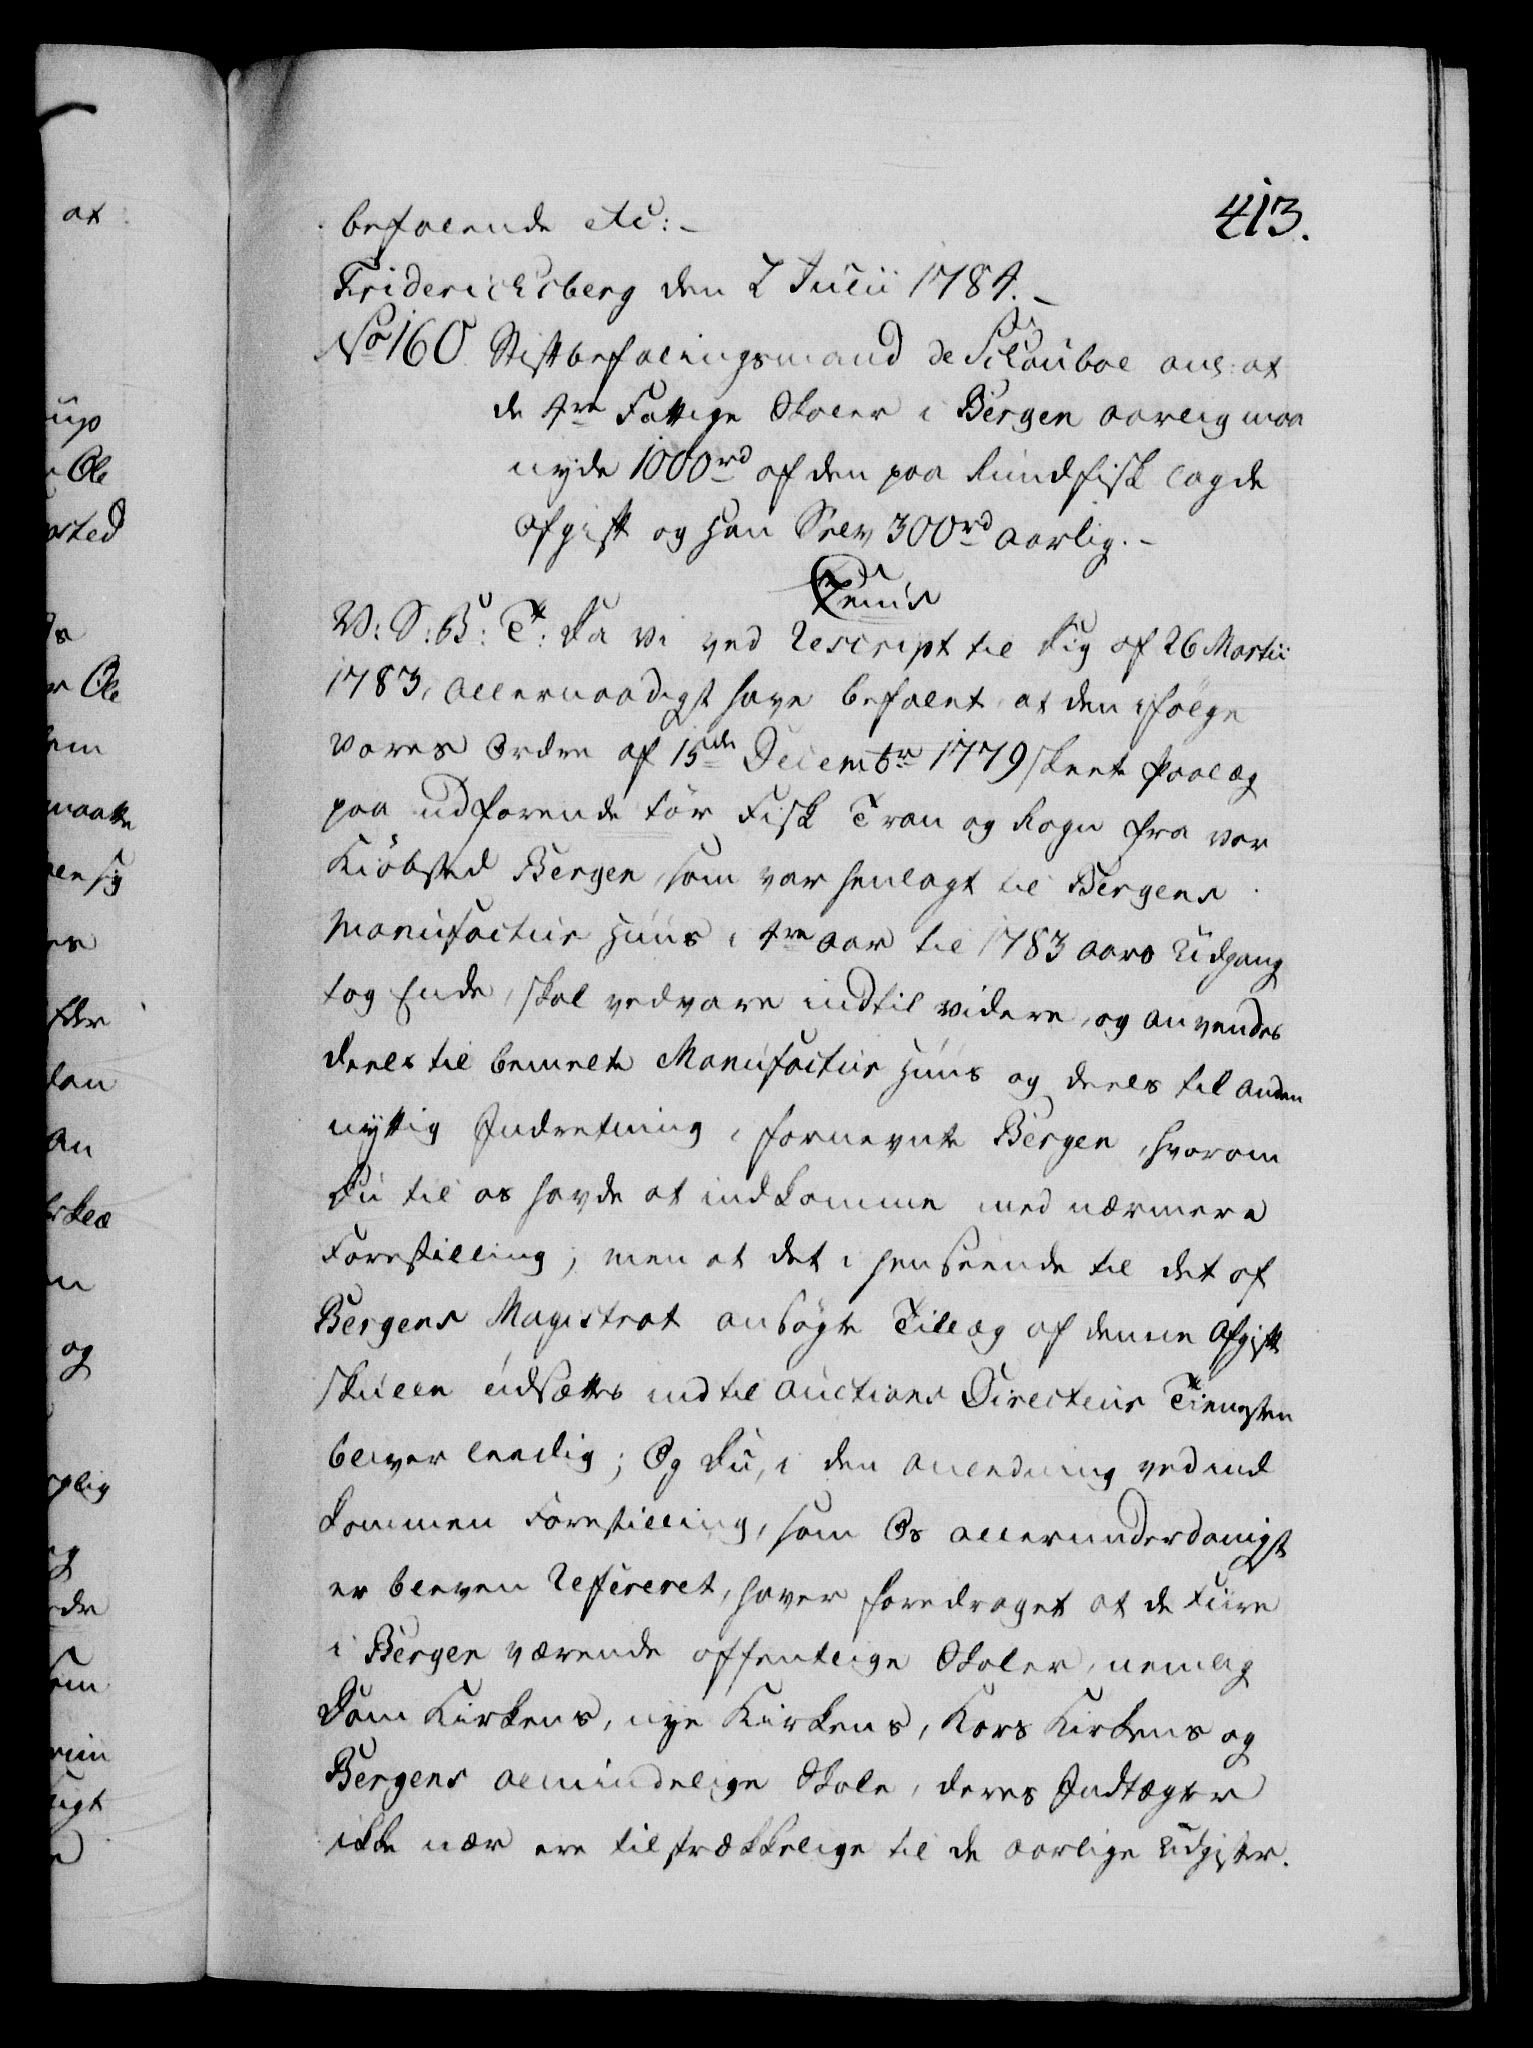 413.
befalende etc: -
Friderichsberg den 7 Julii 1784. -
No 160 Stiftbefalingsmand de Schouboe anl: at
de 4re Fattige Skoler i Bergen aarlig maa
nyde 1000rd af den paa Rundfisk lagde
Afgift og Han Selv 300rd aarlig. -
V: S: B: T: Da Vi ved Rescript til Dig af 26 Martii
1783, allernaadigst have befalet, at den ifølge
Vores Ordre af 15de Decembr 1779 skeete Paalæg
paa udførende tør Fisk Tran og Rogn fra vor
Kiøbsted Bergen, som var henlagt til Bergens
Manufactur Huus i 4re Aar til 1783 Aars Udgang
tog Ende, skal vedvare indtil videre, og anvendes
deels til bemelte Manufactur Huus og deels til anden
nyttig Indretning i fornevnte Bergen, hvorom
Du til os havde at indkomme med nærmere
Forestilling; men at det i henseende til det af
Bergens Magistrat ansøgte Tillæg af denne Afgift
skulle udsættes indtil Auctions Directeur Tienesten
bliver leedig; Og Du, i den Anledning ved ind
kommen Forestilling, som Os allerunderdanigst
er bleven Refereret, haver foredraget at de Fiire
i Bergen værende offentlige Skoler, nemlig
Dom Kirkens, nye Kirkens, Kors Kirkens og
Bergens almindelige Skole, deres Indtægter
ikke nær ere tilstrækkelige til de aarlige Udgifter.
at
Ole
og